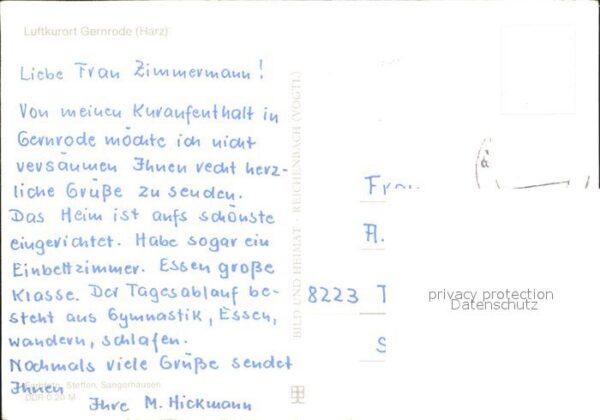 Luftkurort Gernrode (Harz)
Liebe Frau Zimmermann!
Von meinen Kuraufenthalt in
Gernrode möchte ich nicht
versäumen Ihnen recht herz-
liche Grüße zu senden.
Das Heim ist aufs schönste
eingerichtet. Habe sogar ein
Einbettzimmer. Essen große
Klasse. Der Tagesablauf be-
steht aus Gymnastik, Essen,
wandern, schlafen.
Nochmals viele Grüße sendet
Ihnen
Ihre M. Hickmann
Steffen, Sangerhausen
DDR 0,20 M
BILD UND HEIMAT · REICHENBACH (VOGTL)
Frau
A.
8223 T
S
privacy protection
Datenschutz